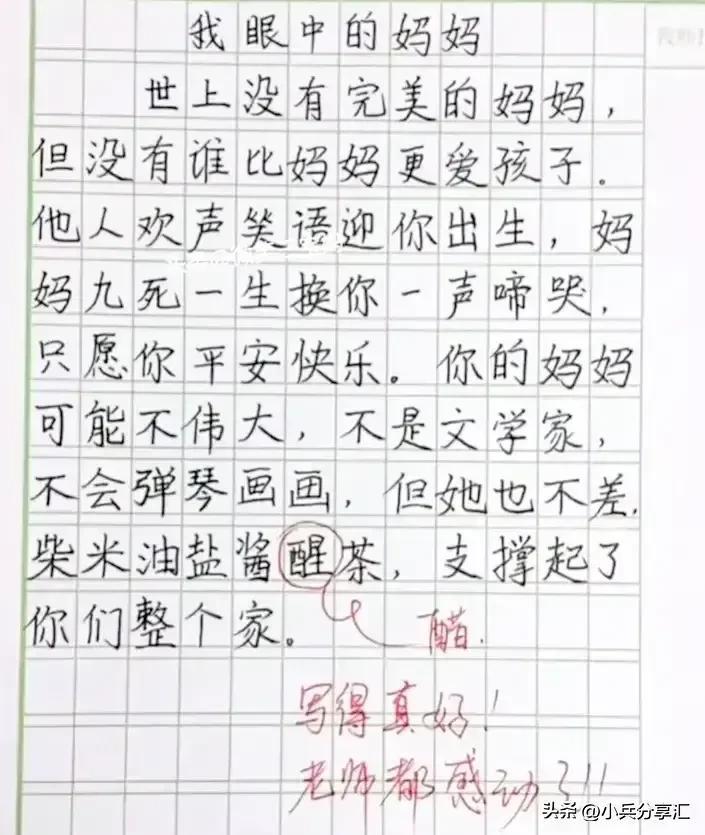 我眼中的妈妈
世上没有完美的妈妈，
但没有谁比妈妈更爱孩子。
他人欢声笑语迎你出生，妈
妈九死一生换你一声啼哭，
只愿你平安快乐。你的妈妈
可能不伟大，不是文学家，
不会弹琴画画，但她也不差，
柴米油盐酱醒茶，支撑起了
你们整个家。
醋.
写得真好！
老师都感动了!!
头条 @小兵分享汇